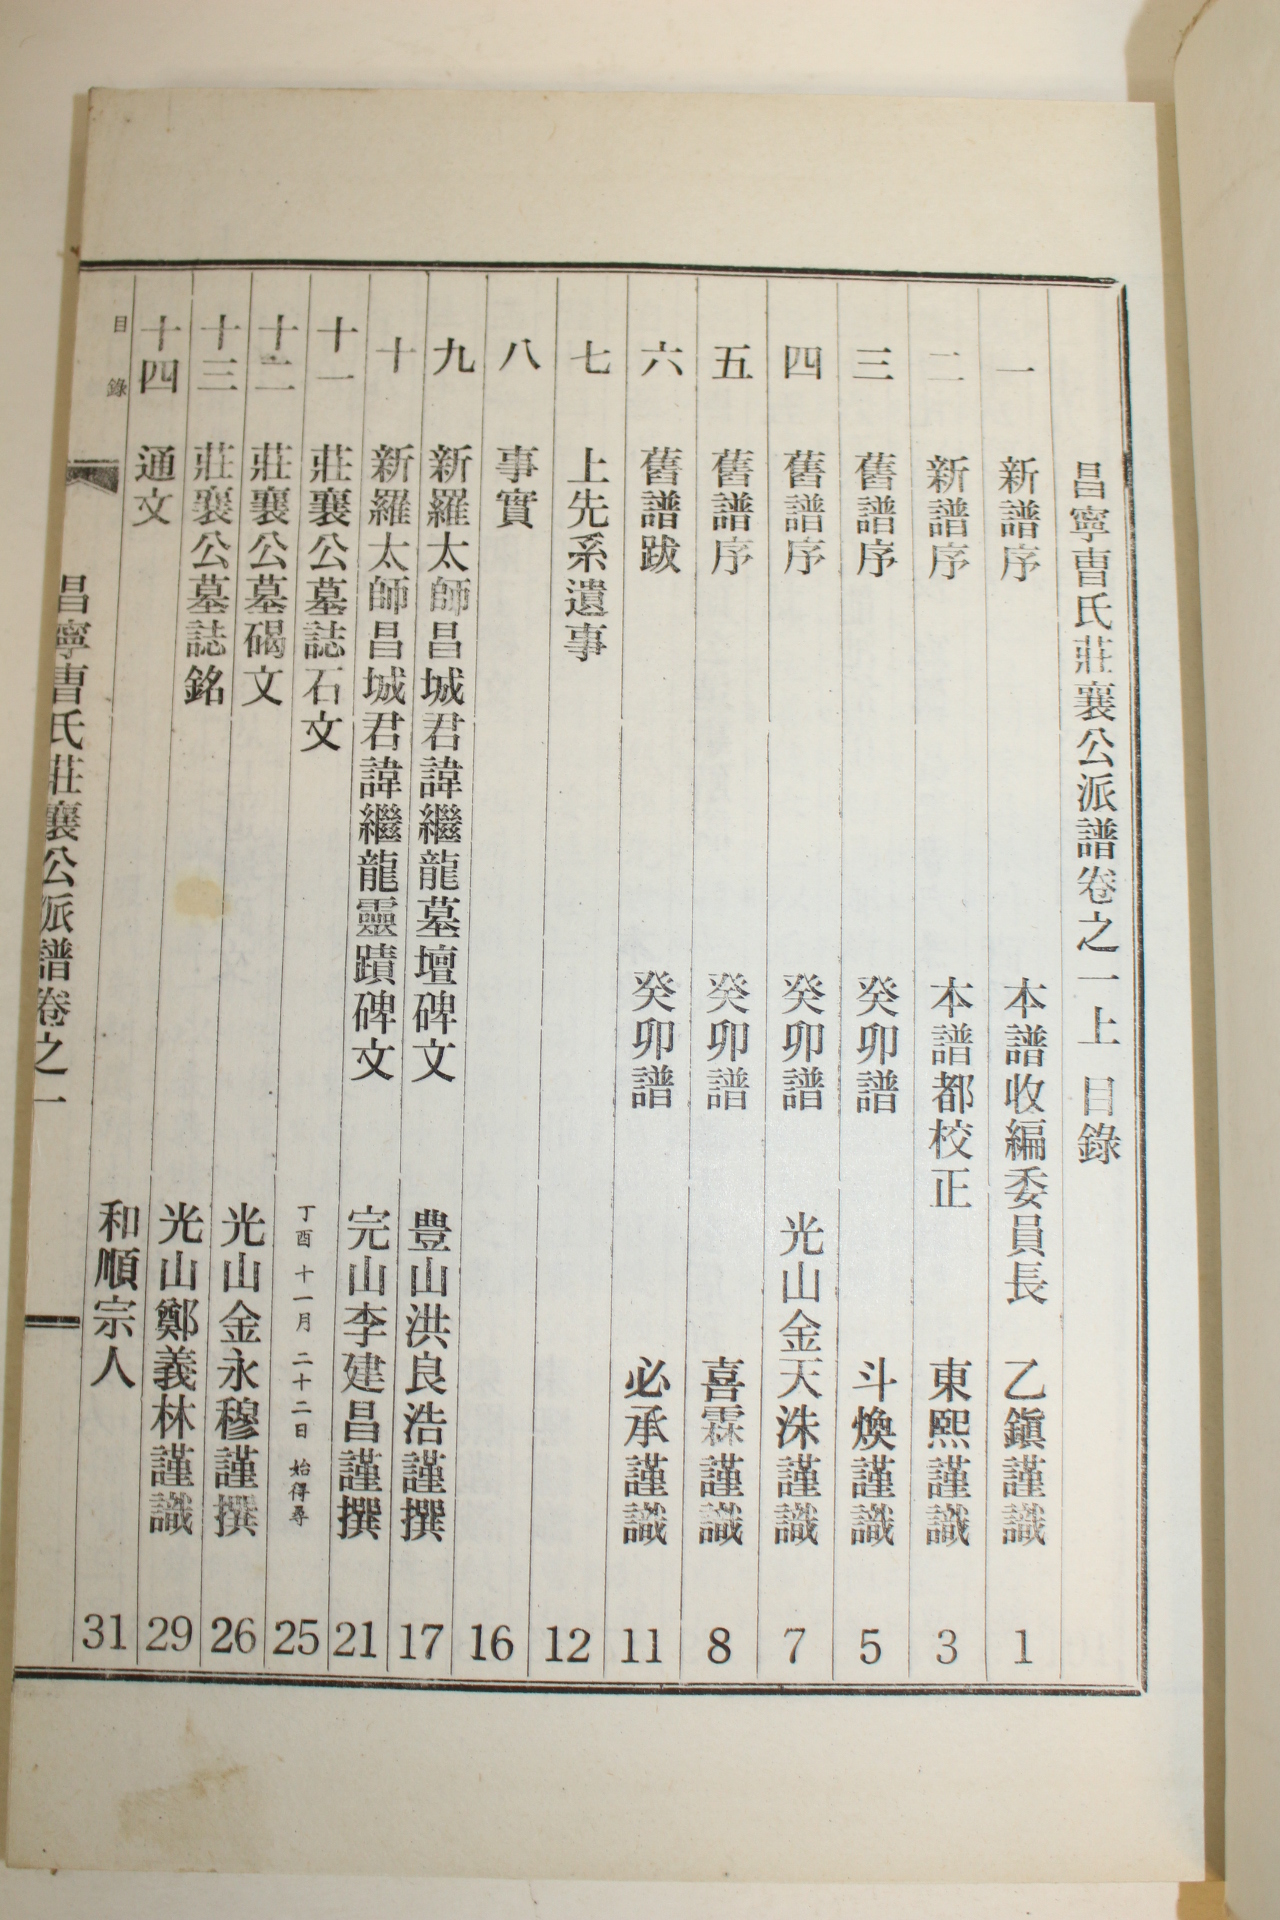 昌寧曺氏莊襄公派譜卷之一上 目錄
一 新譜序 本譜收編委員長 乙鎭謹識 1
二 新譜序 本譜都校正 東熙謹識 3
三 舊譜序 癸卯譜 斗煥謹識 5
四 舊譜序 癸卯譜 光山金天洙謹識 7
五 舊譜序 癸卯譜 喜霖謹識 8
六 舊譜跋 癸卯譜 必承謹識 11
七 上先系遺事 12
八 事實 16
九 新羅太師昌城君諱繼龍墓壇碑文 豊山洪良浩謹撰 17
十 新羅太師昌城君諱繼龍靈蹟碑文 完山李建昌謹撰 21
十一 莊襄公墓誌石文 丁酉十一月二十二日始得尋 25
十二 莊襄公墓碣文 光山金永穆謹撰 26
十三 莊襄公墓誌銘 光山鄭義林謹識 29
十四 通文 和順宗人 31
目錄
昌寧曺氏莊襄公派譜卷之一